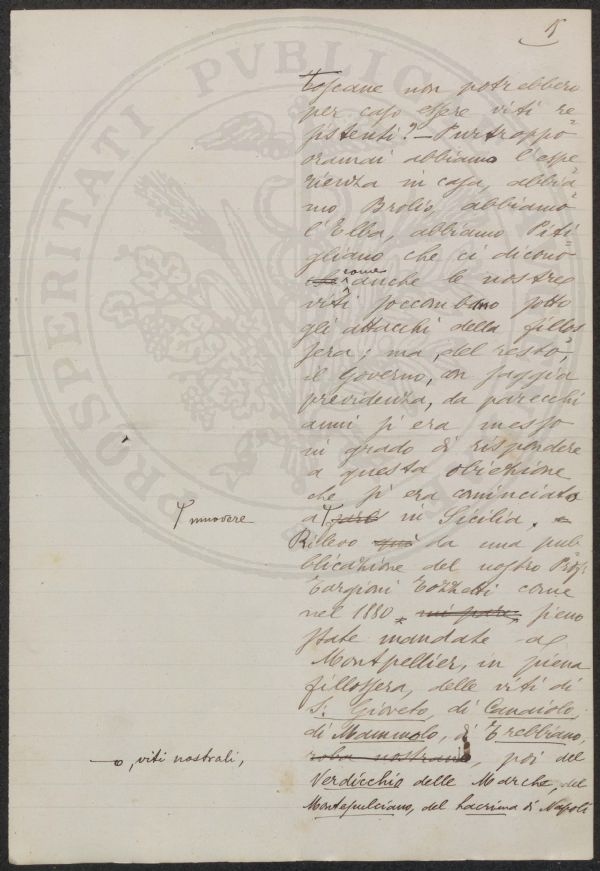 5
Toscane non potrebbero
per caso essere viti re
sistenti? – Purtroppo
oramai abbiamo l'espe
rienza in casa, abbia
mo Brolio, abbiamo
l'Elba, abbiamo Piti
gliano che ci dicono
che come anche le nostre
viti soccombano sotto
gli attacchi della fillos
sera; ma, del resto,
il Governo, con saggia
previdenza, da parecchi
anni si era messo
in grado di rispondere
a questa obiezione
che si era cominciata
a in Sicilia.
muovere
Rilevo quì da una pub
blicazione del nostro Prof.
Targioni Tozzetti come
nel 1880 mi pare, sieno
state mandate a
Montpellier, in piena
fillossera, delle viti di
S. Gioveto, di Canaiolo,
di Mammolo, di Trebbiano,
roba nostrana, poi del
o, viti nostrali,
Verdicchio delle Marche, del
Montepulciano, del Lacrima di Napoli
PROSPERITATI PUBLICAE